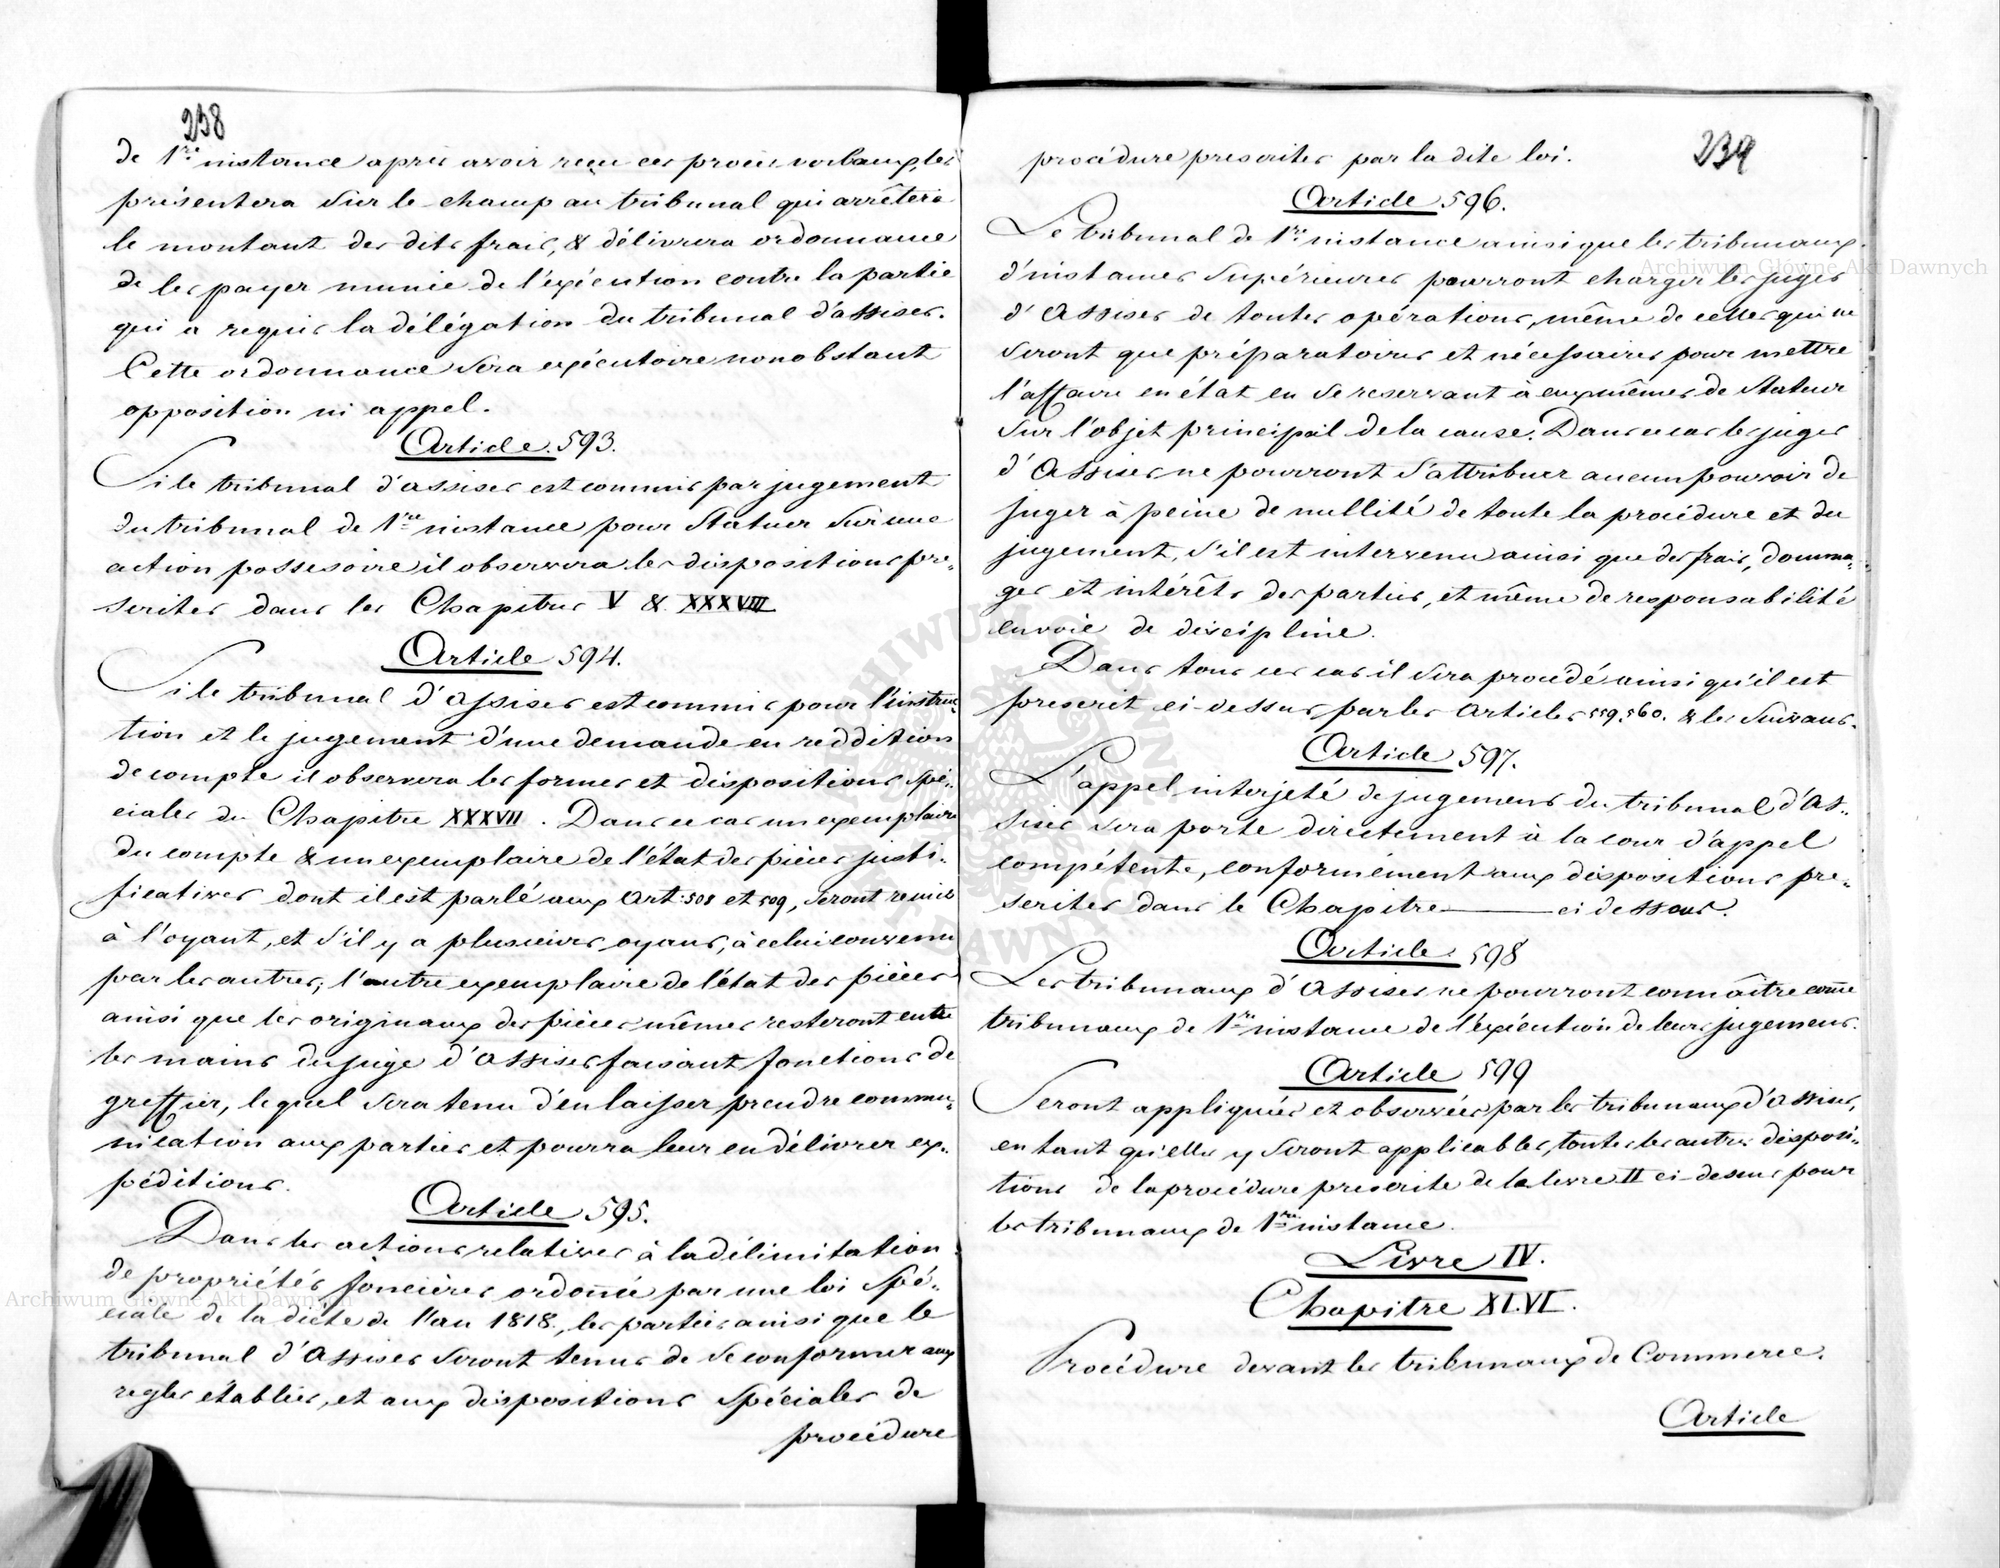 238
de 1re instance après avoir reçu ces procès verbaux, les
présentera sur le champ au tribunal qui arrêtera
le montant des dits frais, & délivrera ordonnance
de les payer munie de l'exécution contre la partie
qui a requis la délégation du tribunal d'assises.
Cette ordonnance sera exécutoire nonobstant
opposition ni appel.
Article. 593.
Si le tribunal d'assises est commis par jugement
du tribunal de 1re instance pour statuer sur une
action possesoire il observera les dispositions pre-
scrites dans les Chapitres V & XXXVIII
Article 594.
Si le tribunal d'Assises est commis pour l'instruc-
tion et le jugement d'une demande en reddition
de compte il observera les formes et dispositions spé-
ciales du Chapitre XXXVII. Dans ce cas un exemplaire
du compte & un exemplaire de l'état des pièces justi-
ficatives dont il est parlé aux Art: 508 et 509, seront remis
à l'oyant, et s'il y a plusieurs oyans, à celui convenu
par les autres; l'autre exemplaire de l'état des pièces
ainsi que les originaux des pièces mêmes resteront entre
les mains du juge d'Assises faisant fonctions de
greffier, lequel sera tenu d'en laisser prendre commu-
nication aux parties et pourra leur en délivrer ex-
péditions.
Article 595.
Dans les actions relatives à la délimitation
de propriétés foncières ordonnée par une loi spé-
ciale de la diète de l'an 1818., les parties ainsi que le
tribunal d'Assises seront tenus de se conformer aux
regles établies, et aux dispositions spéciales de
procédure
239
procédure prescrites par la dite loi.
Article 596.
Le tribunal de 1re instance ainsi que les tribunaux
d'instances supérieures pourront charger les juges
d'Assises de toutes opérations, même de celles qui ne
seront que préparatoires et nécessaires pour mettre
l'affaire en état en se reservant à eux mêmes de statuer
sur l'objet principal de la cause. Dans ce cas les juges
d'Assises ne pourront s'attribuer aucun pouvoir de
juger à peine de nullité de toute la procédure et du
jugement, s'il est intervenu ainsi que des frais, domma-
ges et intérêts des parties, et même de responsabilité
en voie de discipline.
Dans tous ces cas il sera procédé ainsi qu'il est
prescrit ci-dessus par les Articles 559. 560. & les suivans.
Article 597.
L'appel interjeté de jugemens du tribunal d'As-
sises sera porté directement à la cour d'appel
compétente, conformément aux dispositions pre-
scrites dans le Chapitre ——— ci dessous.
Article. 598
Les tribunaux d'Assises ne pourront connaître comme
tribunaux de 1re instance de l'exécution de leurs jugemens.
Article 599
Seront appliquées et observées par les tribunaux d'Assises,
en tant qu'elles y seront applicables, toutes les autres disposi-
tions de la procédure prescrite de la livre II ci-dessus pour
les tribunaux de 1re instance.
Livre IV.
Chapitre XLVI.
Procédure devant les tribunaux de Commerce.
Article
Archiwum Główne Akt Dawnych
Archiwum Główne Akt Dawnych